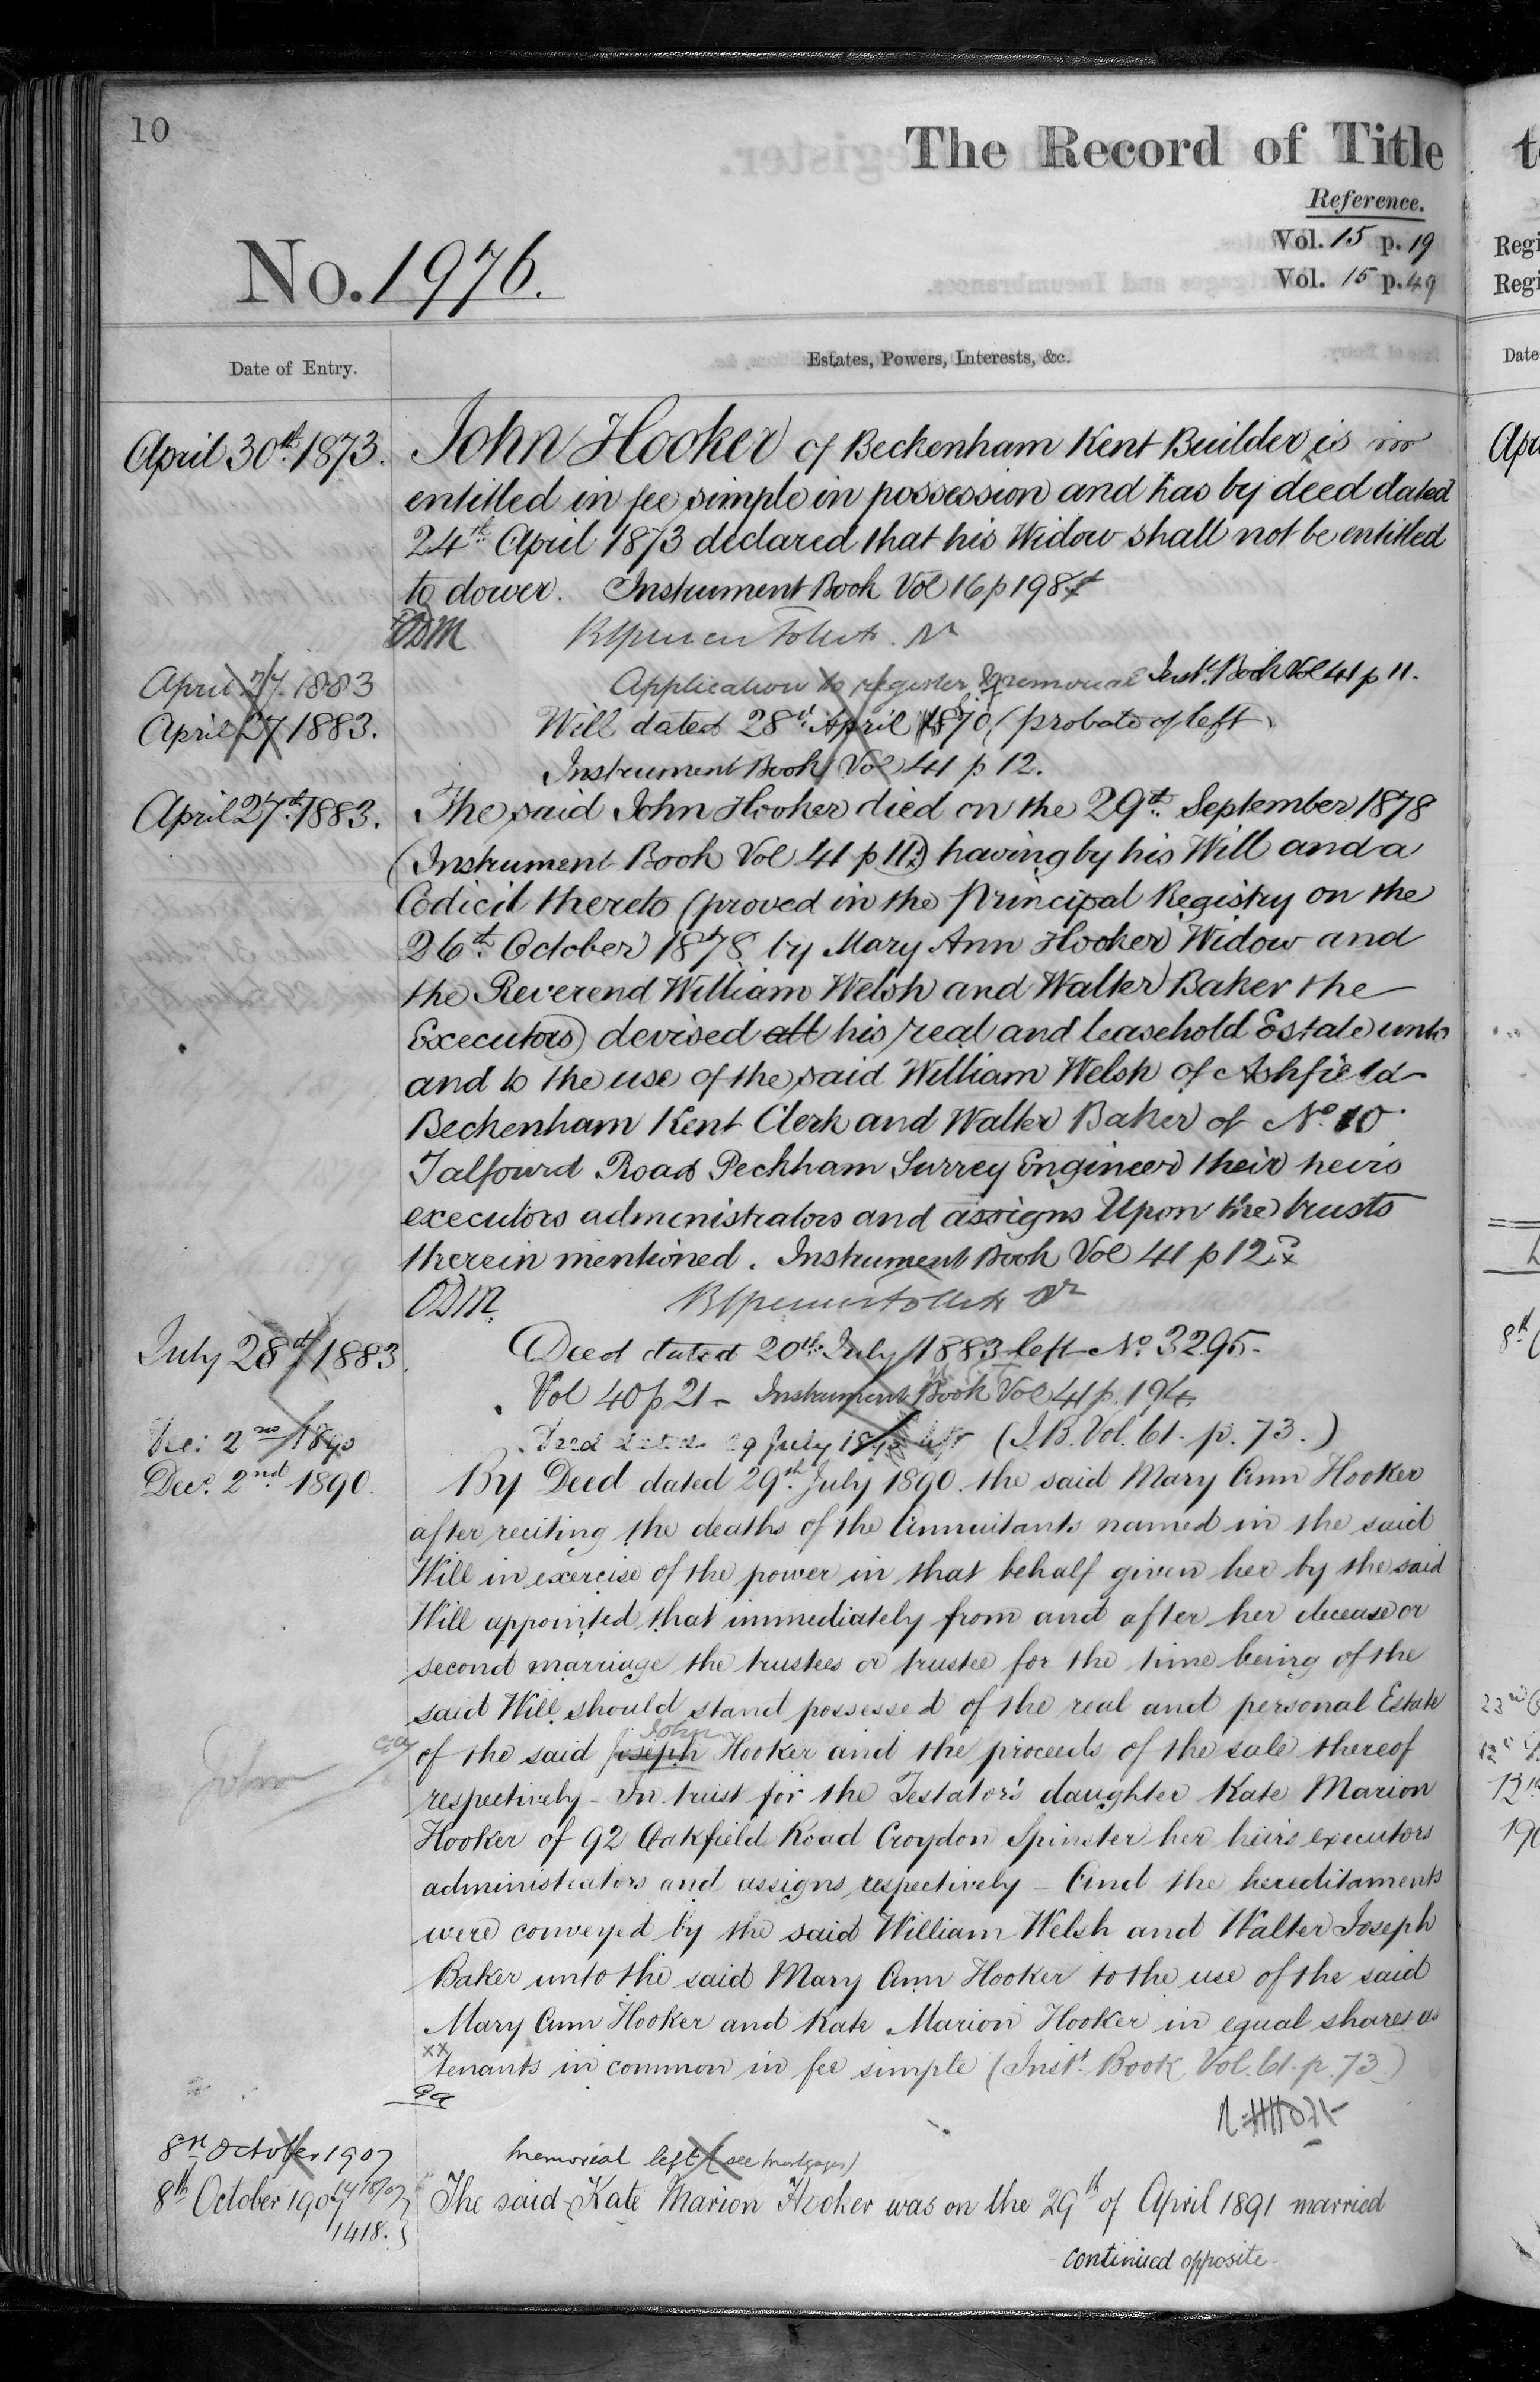 10
The Record of Title
Reference.
Vol. 15 p. 19
Vol. 15 p. 49
No. 1976.
Date of Entry.
Estates, Powers, Interests, &c.
April 30th 1873. John Hooker of Beckenham Kent Builder is
entitled in fee simple in possession and has by deed dated
24th April 1873 declared that his Widow shall not be entitled
to dower. Instrument Book Vol 16 p 198
ODM
April 27. 1883 Application to register memorial Inst. Book Vol 41 p 11.
April 27 1883. Will dated 28th April 1870 (probate of left
Instrument Book Vol 41 p 12.
April 27th 1883. The said John Hooker died on the 29th September 1878
(Instrument Book Vol 41 p 11) having by his Will and a
Codicil thereto (proved in the Principal Registry on the
26th October 1878 by Mary Ann Hooker Widow and
the Reverend William Welsh and Walter Baker the
Executors) devised all his real and leasehold Estate unto
and to the use of the said William Welsh of Ashfield
Beckenham Kent Clerk and Walter Baker of No. 10
Talfourd Road Peckham Surrey Engineer their heirs
executors administrators and assigns Upon the trusts
therein mentioned. Instrument Book Vol 41 p 12
ODM.
July 28th 1883. Deed dated 20th July 1883 left No. 3295.
Vol 40 p 21 - Instrument Book Vol 41 p. 194
Dec: 2nd 1890 Deed dated 29 July 1890 left (I.B. Vol. 61. p. 73.)
Dec. 2nd 1890. By Deed dated 29th July 1890. the said Mary Ann Hooker
after reciting the deaths of the Annuitants named in the said
Will in exercise of the power in that behalf given her by the said
Will appointed that immediately from and after her decease or
second marriage the trustees or trustee for the time being of the
said Will should stand possessed of the real and personal Estate
John
of the said Joseph Hooker and the proceeds of the sale thereof
John
respectively - In trust for the Testator's daughter Kate Marion
Hooker of 92 Oakfield Road Croydon Spinster her heirs executors
administrators and assigns respectively - And the hereditaments
were conveyed by the said William Welsh and Walter Joseph
Baker unto the said Mary Ann Hooker to the use of the said
Mary Ann Hooker and Kate Marion Hooker in equal shares as
xx
tenants in common in fee simple (Inst. Book Vol. 61. p. 73.)
8th October 1907 Memorial left (see Mortgages)
8th October 1907 The said Kate Marion Hooker was on the 29th of April 1891 married
1418.
continued opposite
Regi
Regi
Date